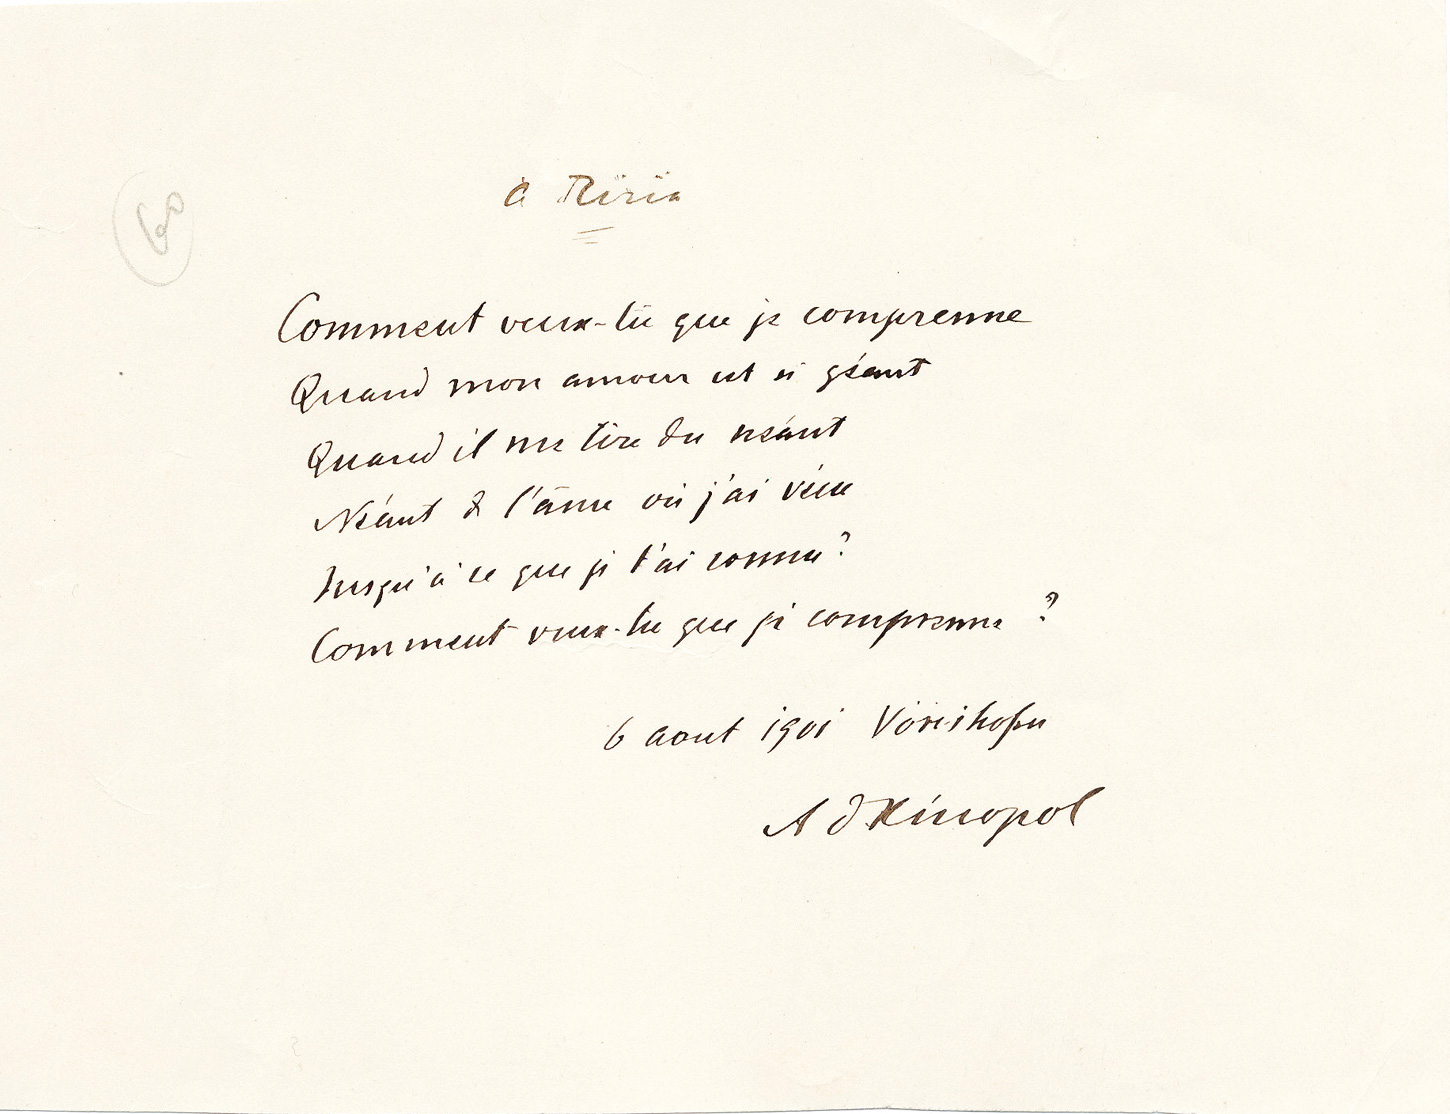 à Riria
60
Comment veux-tu que je comprenne
Quand mon amour est si géant
Quand il me tire du néant
Néant de l'âme où j'ai vécu
Jusqu'à ce que je t'ai connu?
Comment veux-tu que je comprenne?
6 aout 1901 Vörishofen
A D Xénopol